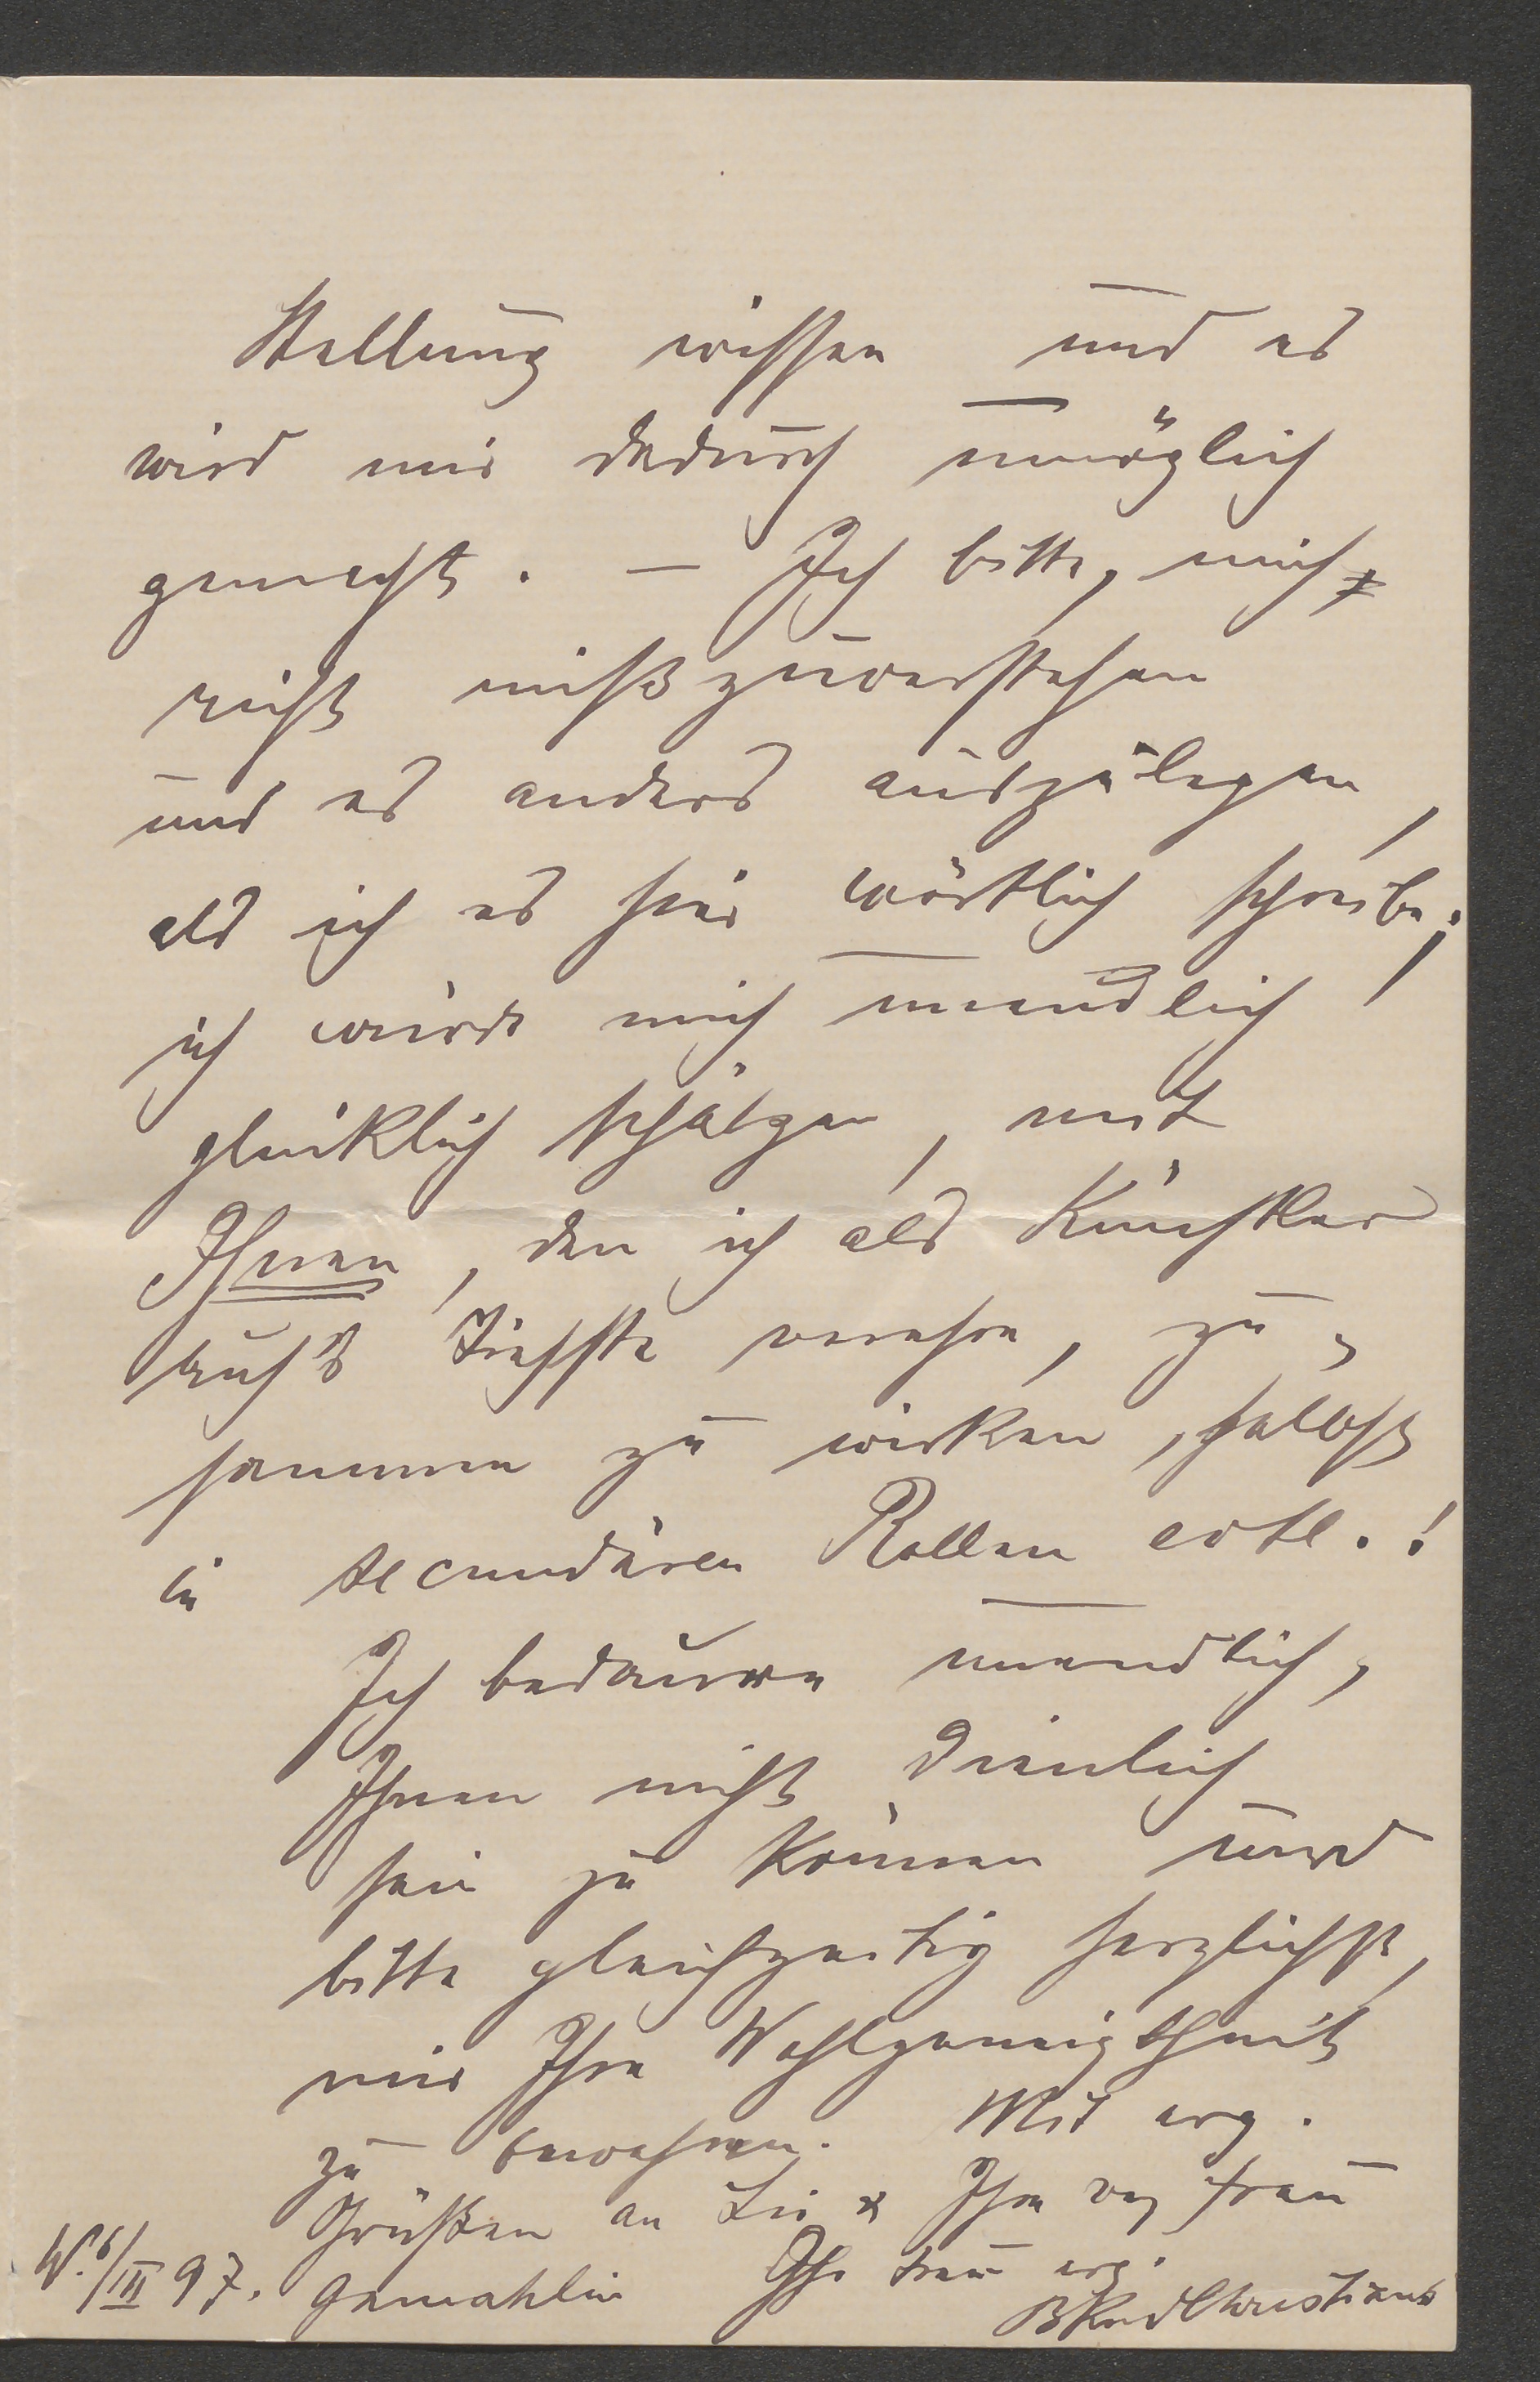 Stellung wissen und es
wird mir dadurch unmöglich
gemacht. — Ich bitte, mich
nicht mißzuverstehen
und es anders auszulegen,
als ich es hier wörtlich schreibe;
ich würde mich unendlich
glücklich schätzen, mit
Ihnen, den ich als Künstler
auf's Tiefste verehre, zu-
sammen zu wirken, selbst
in secundären Rollen evtl.!
Ich bedaure unendlich,
Ihnen nicht dienlich
sein zu können und
bitte gleichzeitig herzlichst,
mir Ihre Wohlgeneigtheit
zu bewahren. Mit erg.
Grüßen an Sie & Ihre Frau
Gemahlin Ihr treu erg.
W. 6/III 97. Christians